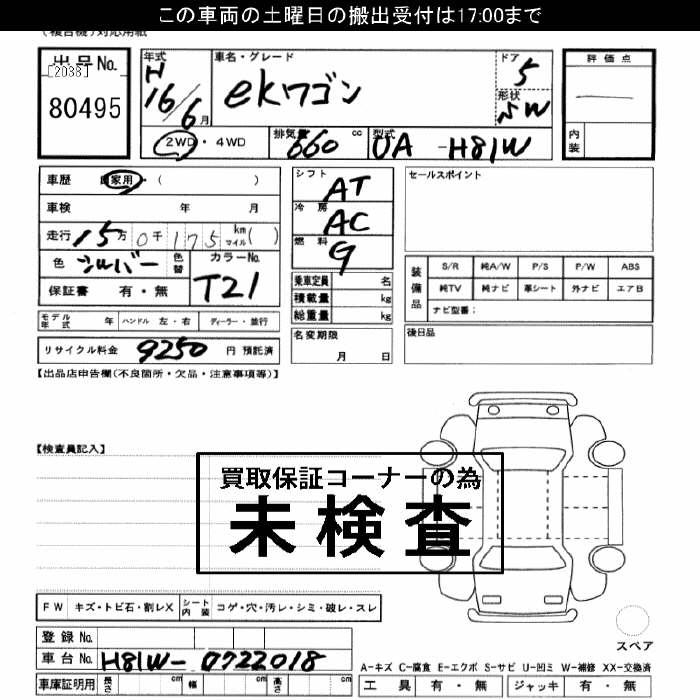 この車両の土曜日の搬出受付は17:00まで
(複合機)対応用紙
出品No.
[2038]
80495
年式
H
16/6月
車名・グレード
eKワゴン
ドア
5
形状
SW
評価点
内装
2WD・4WD
排気量
660
cc
型式
UA -H81W
車歴 自家用・( )
車検 年 月
走行 15万0千175 km マイル( )
色 シルバー 色替
カラーNo.
T21
保証書 有・無
モデル年式 年 ハンドル 左・右 ディーラー・並行
リサイクル料金 9250 円 預託済
シフト
AT
冷房
AC
燃料
G
乗車定員 名
積載量 kg
総重量 kg
名変期限
月 日
セールスポイント
装備品
S/R 純A/W P/S P/W ABS
純TV 純ナビ 革シート 外ナビ エアB
ナビ型番:
後日品
【出品店申告欄(不良箇所・欠品・注意事項等)】
【検査員記入】
買取保証コーナーの為
未検査
FW キズ・トビ石・割レX シート内装 コゲ・穴・汚レ・シミ・破レ・スレ
登録No.
車台No. H81W-0722018
車庫証明用 長さ cm 幅 cm 高さ cm
スペア
A-キズ C-腐食 E-エクボ S-サビ U-凹ミ W-補修 XX-交換済
工具 有・無 ジャッキ 有・無